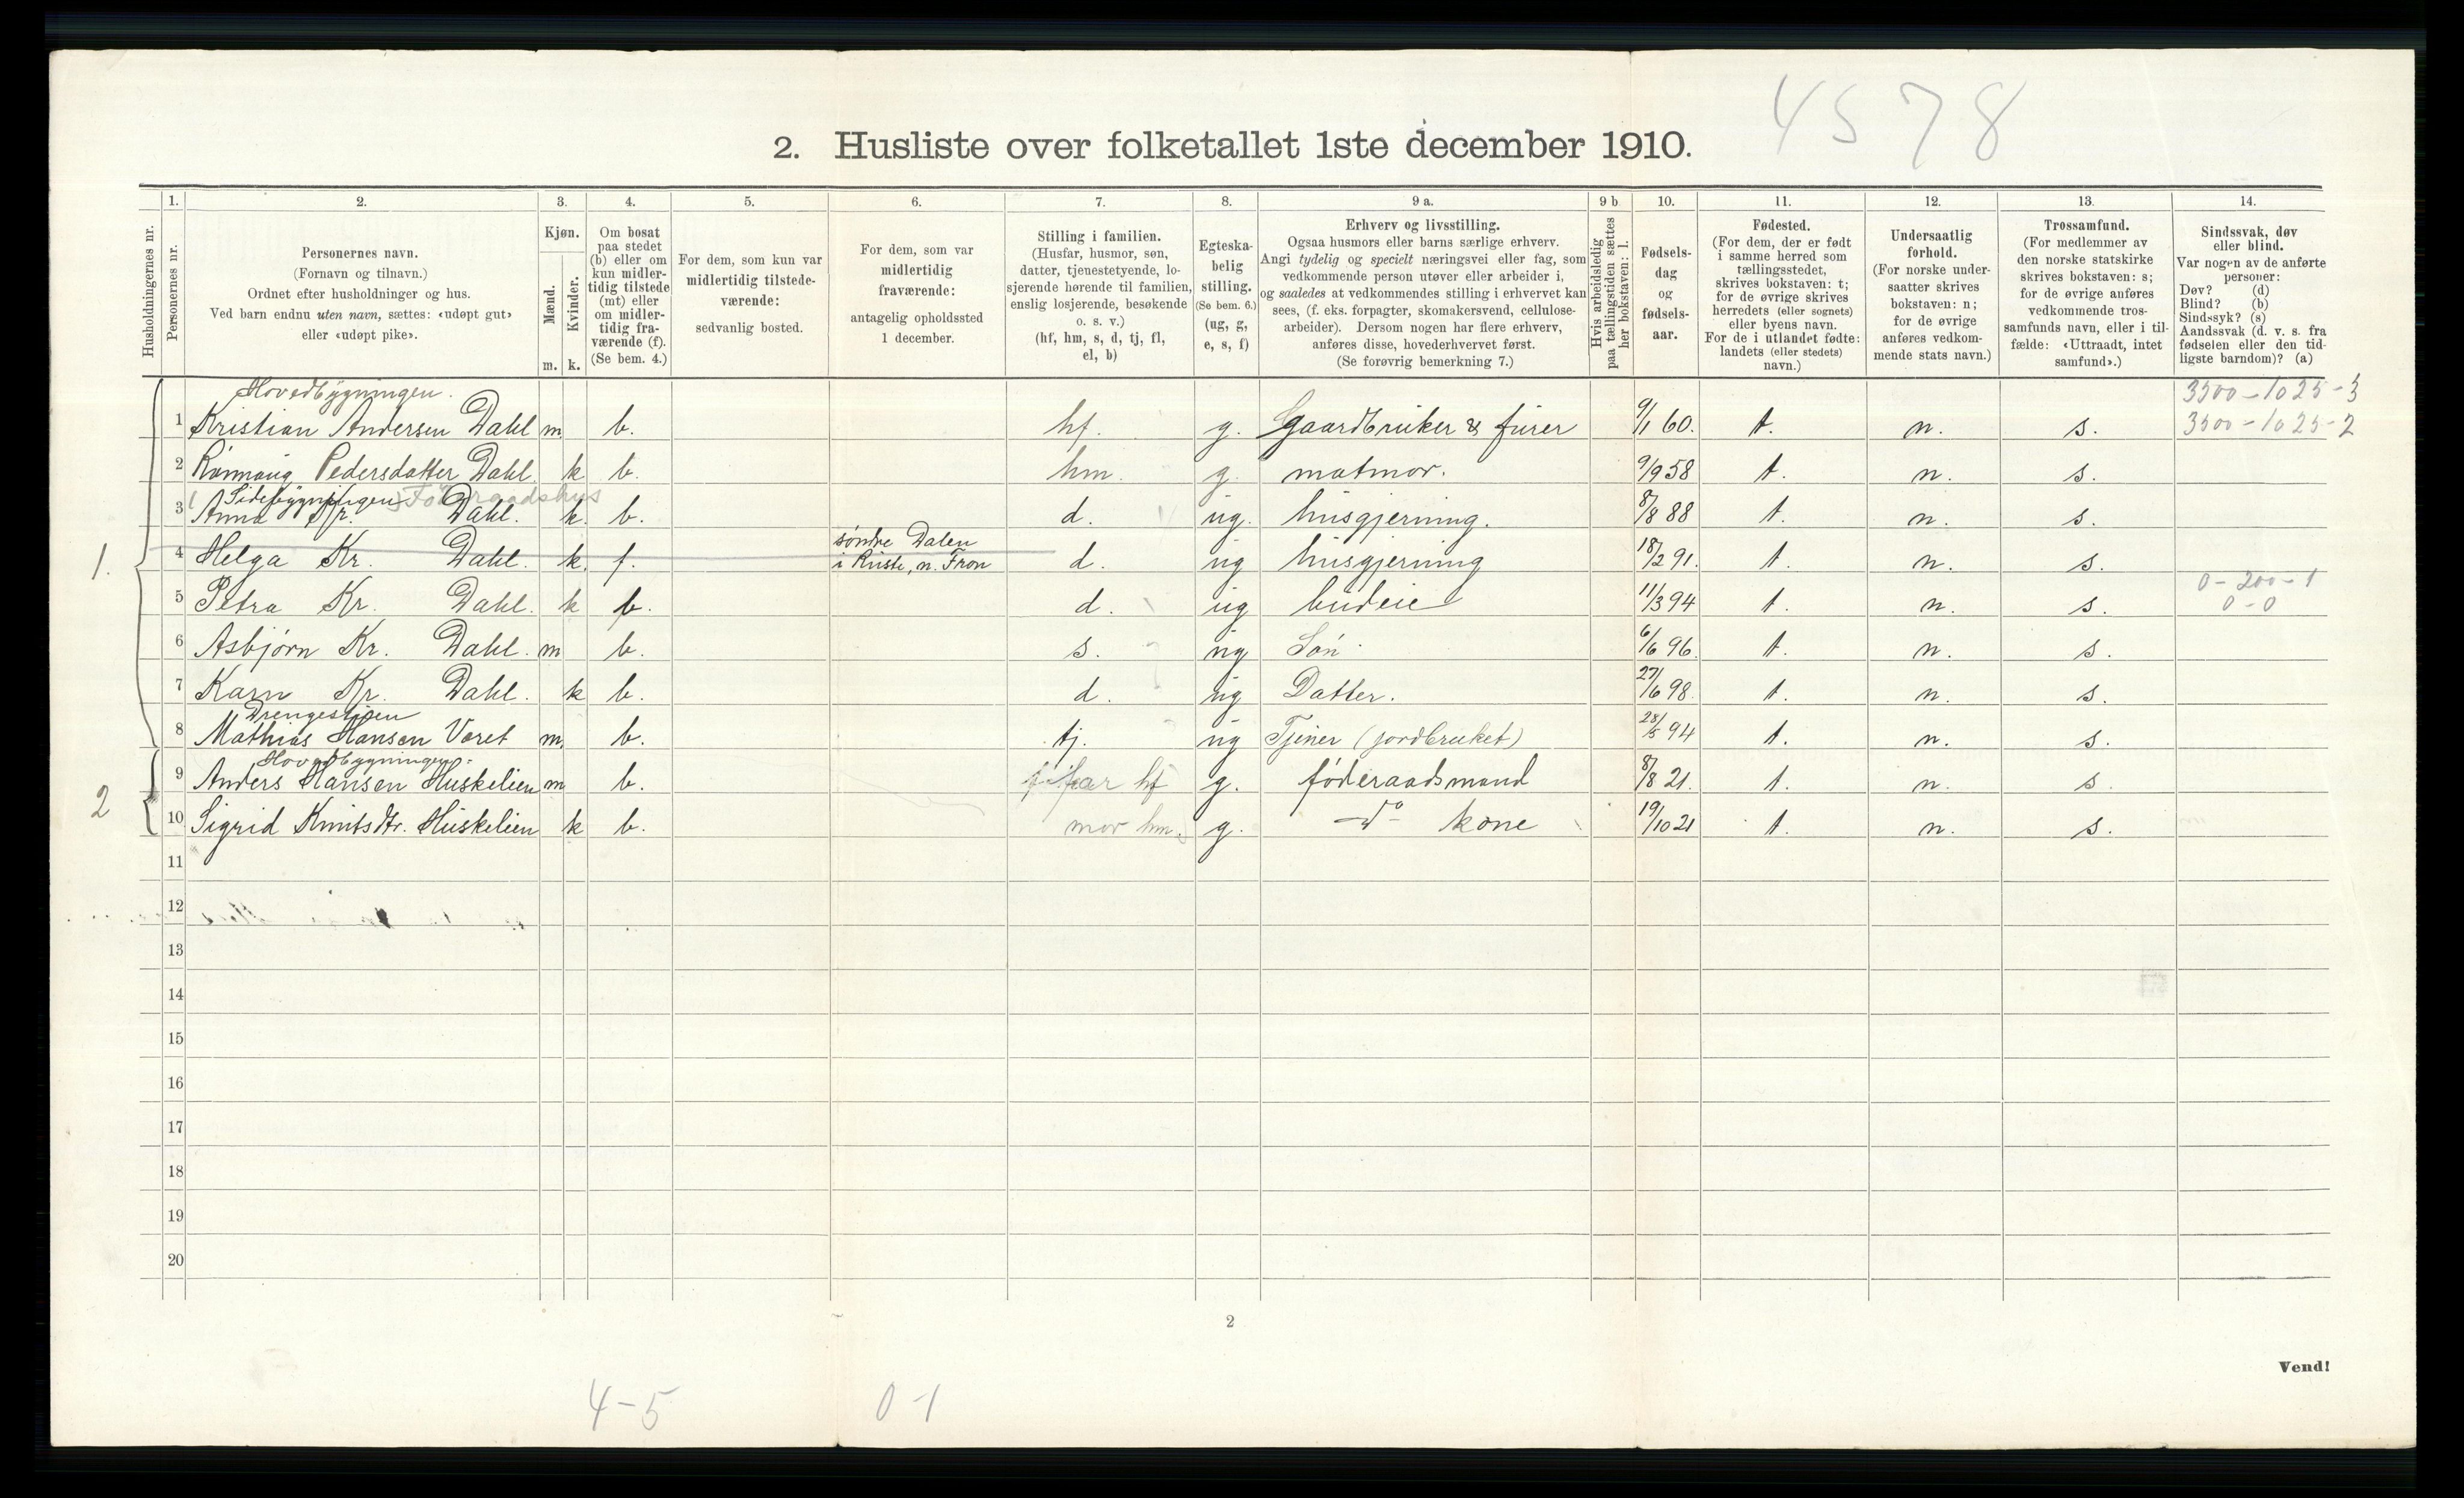 4578
2. Husliste over folketallet 1ste december 1910.
Husholdningernes nr.
1. Personernes nr.
2. Personernes navn.
(Fornavn og tilnavn.)
Ordnet efter husholdninger og hus.
Ved barn endnu uten navn, sættes: «udøpt gut»
eller «udøpt pike».
3. Kjøn.
Mænd. Kvinder.
m. k.
4. Om bosat
paa stedet
(b) eller om
kun midler-
tidig tilstede
(mt) eller
om midler-
tidig fra-
værende (f).
(Se bem. 4.)
5. For dem, som kun var
midlertidig tilstede-
værende:
sedvanlig bosted.
6. For dem, som var
midlertidig
fraværende:
antagelig opholdssted
1 december.
7. Stilling i familien.
(Husfar, husmor, søn,
datter, tjenestetyende, lo-
sjerende hørende til familien,
enslig losjerende, besøkende
o. s. v.)
(hf, hm, s, d, tj, fl,
el, b)
8. Egteska-
belig
stilling.
(Se bem. 6.)
(ug, g,
e, s, f)
9 a. Erhverv og livsstilling.
Ogsaa husmors eller barns særlige erhverv.
Angi tydelig og specielt næringsvei eller fag, som
vedkommende person utøver eller arbeider i,
og saaledes at vedkommendes stilling i erhvervet kan
sees, (f. eks. forpagter, skomakersvend, cellulose-
arbeider). Dersom nogen har flere erhverv,
anføres disse, hovederhvervet først.
(Se forøvrig bemerkning 7.)
9 b Hvis arbeidsledig
paa tællingstiden sættes
her bokstaven: l.
10. Fødsels-
dag
og
fødsels-
aar.
11. Fødested.
(For dem, der er født
i samme herred som
tællingsstedet,
skrives bokstaven: t;
for de øvrige skrives
herredets (eller sognets)
eller byens navn.
For de i utlandet fødte:
landets (eller stedets)
navn.)
12. Undersaatlig
forhold.
(For norske under-
saatter skrives
bokstaven: n;
for de øvrige
anføres vedkom-
mende stats navn.)
13. Trossamfund.
(For medlemmer av
den norske statskirke
skrives bokstaven: s;
for de øvrige anføres
vedkommende tros-
samfunds navn, eller i til-
fælde: «Uttraadt, intet
samfund».)
14. Sindssvak, døv
eller blind.
Var nogen av de anførte
personer:
Døv? (d)
Blind? (b)
Sindssyk? (s)
Aandssvak (d. v. s. fra
fødselen eller den tid-
ligste barndom)? (a)
Hovedbygningen. 3500-1025-3
1. 1 Kristian Andersen Dahl m b. hf. g. Gaardbruker & furer 9/1 60. t. n. s. 3500-1025-2
2 Rønnaug Pedersdatter Dahl. k b. hm. g. matmor. 9/9 58 t. n. s.
(Sidebygningen) Föderaadshus
3 Anna Kr. Dahl. k. b. d. ug. husgjerning. 8/8 88 t. n. s.
søndre Dalen
4 Helga Kr. Dahl. k. f. i Ruste, n. Fron d. ug husgjerning 18/2 91. t. n. s.
0-200-1
5 Petra Kr. Dahl. k b. d. ug budeie 11/3 94 t. n. s. 0-0
6 Asbjørn Kr. Dahl. m b. s. ug Søn 6/6 96. t. n. s.
7 Karn Kr. Dahl. k b. d. ug Datter. 27/6 98. t. n. s.
Drengestuen
8 Mathias Hansen Voret m. b. tj. ug Tjener (jordbruket) 28/5 94 t. n. s.
Hovedbygningen.
2 9 Anders Hansen Huskelien m b. far hf g. føderaadsmand 8/8 21. t. n. s.
10 Sigrid Knutsdtr. Huskelien k b. mor hm. g. do kone 19/10 21 t. n. s.
11
12
13
14
15
16
17
18
19
20
2
Vend!
4-5 0-1